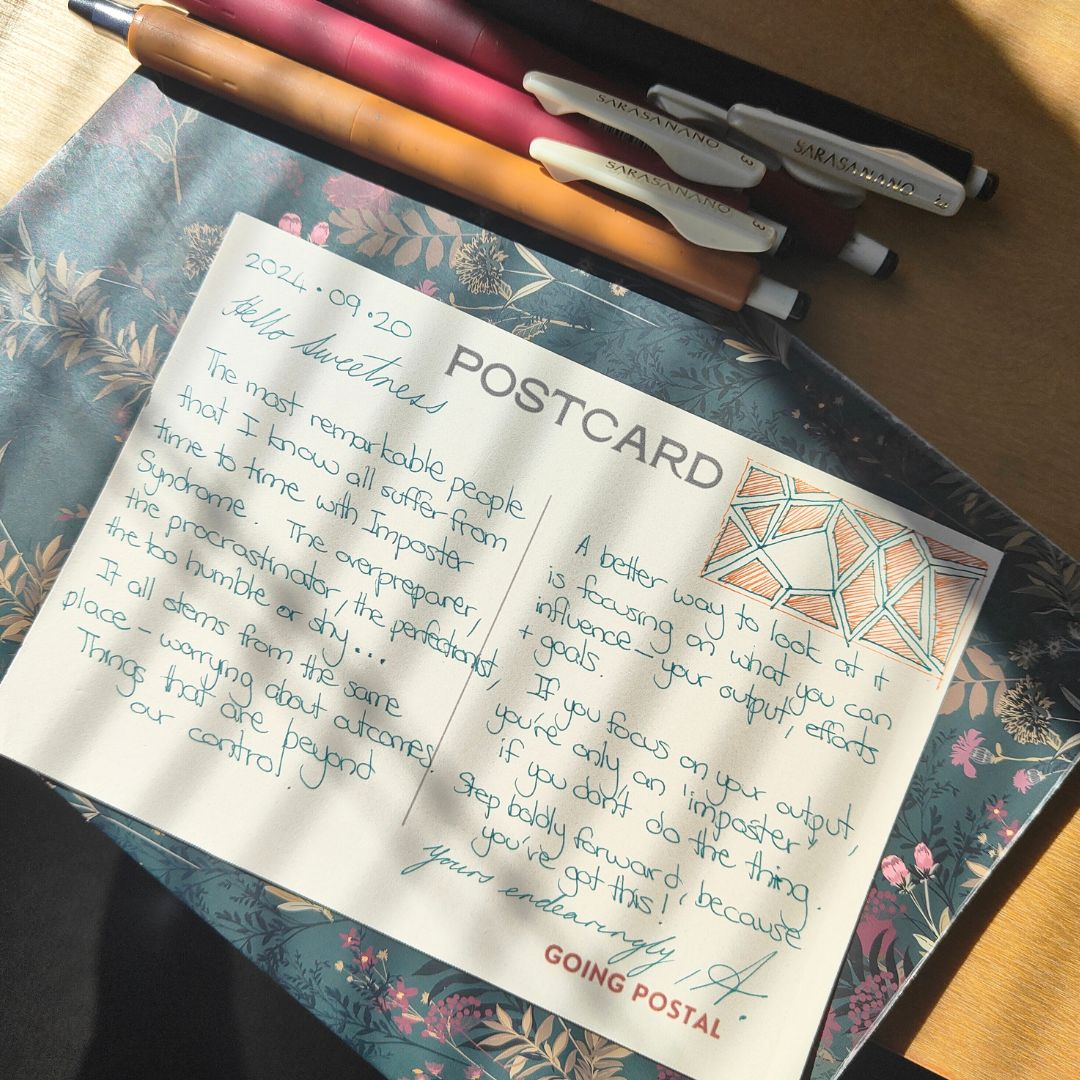 SARASA NANO 3
SARASA NANO 3
SARASA NANO
2024.09.20
Hello Sweetness
POSTCARD
The most remarkable people
that I know all suffer from
time to time with Imposter
Syndrome. The overpreparer,
the procrastinator, the perfectionist,
the too humble or shy...
It all stems from the same
place - worrying about outcomes.
Things that are beyond
our control.
A better way to look at it
is focusing on what you can
influence - your output, efforts
+ goals.
If you focus on your output,
you're only an "imposter"
if you don't do the thing.
Step boldly forward, because
you've got this!
yours endearingly, A.
GOING POSTAL